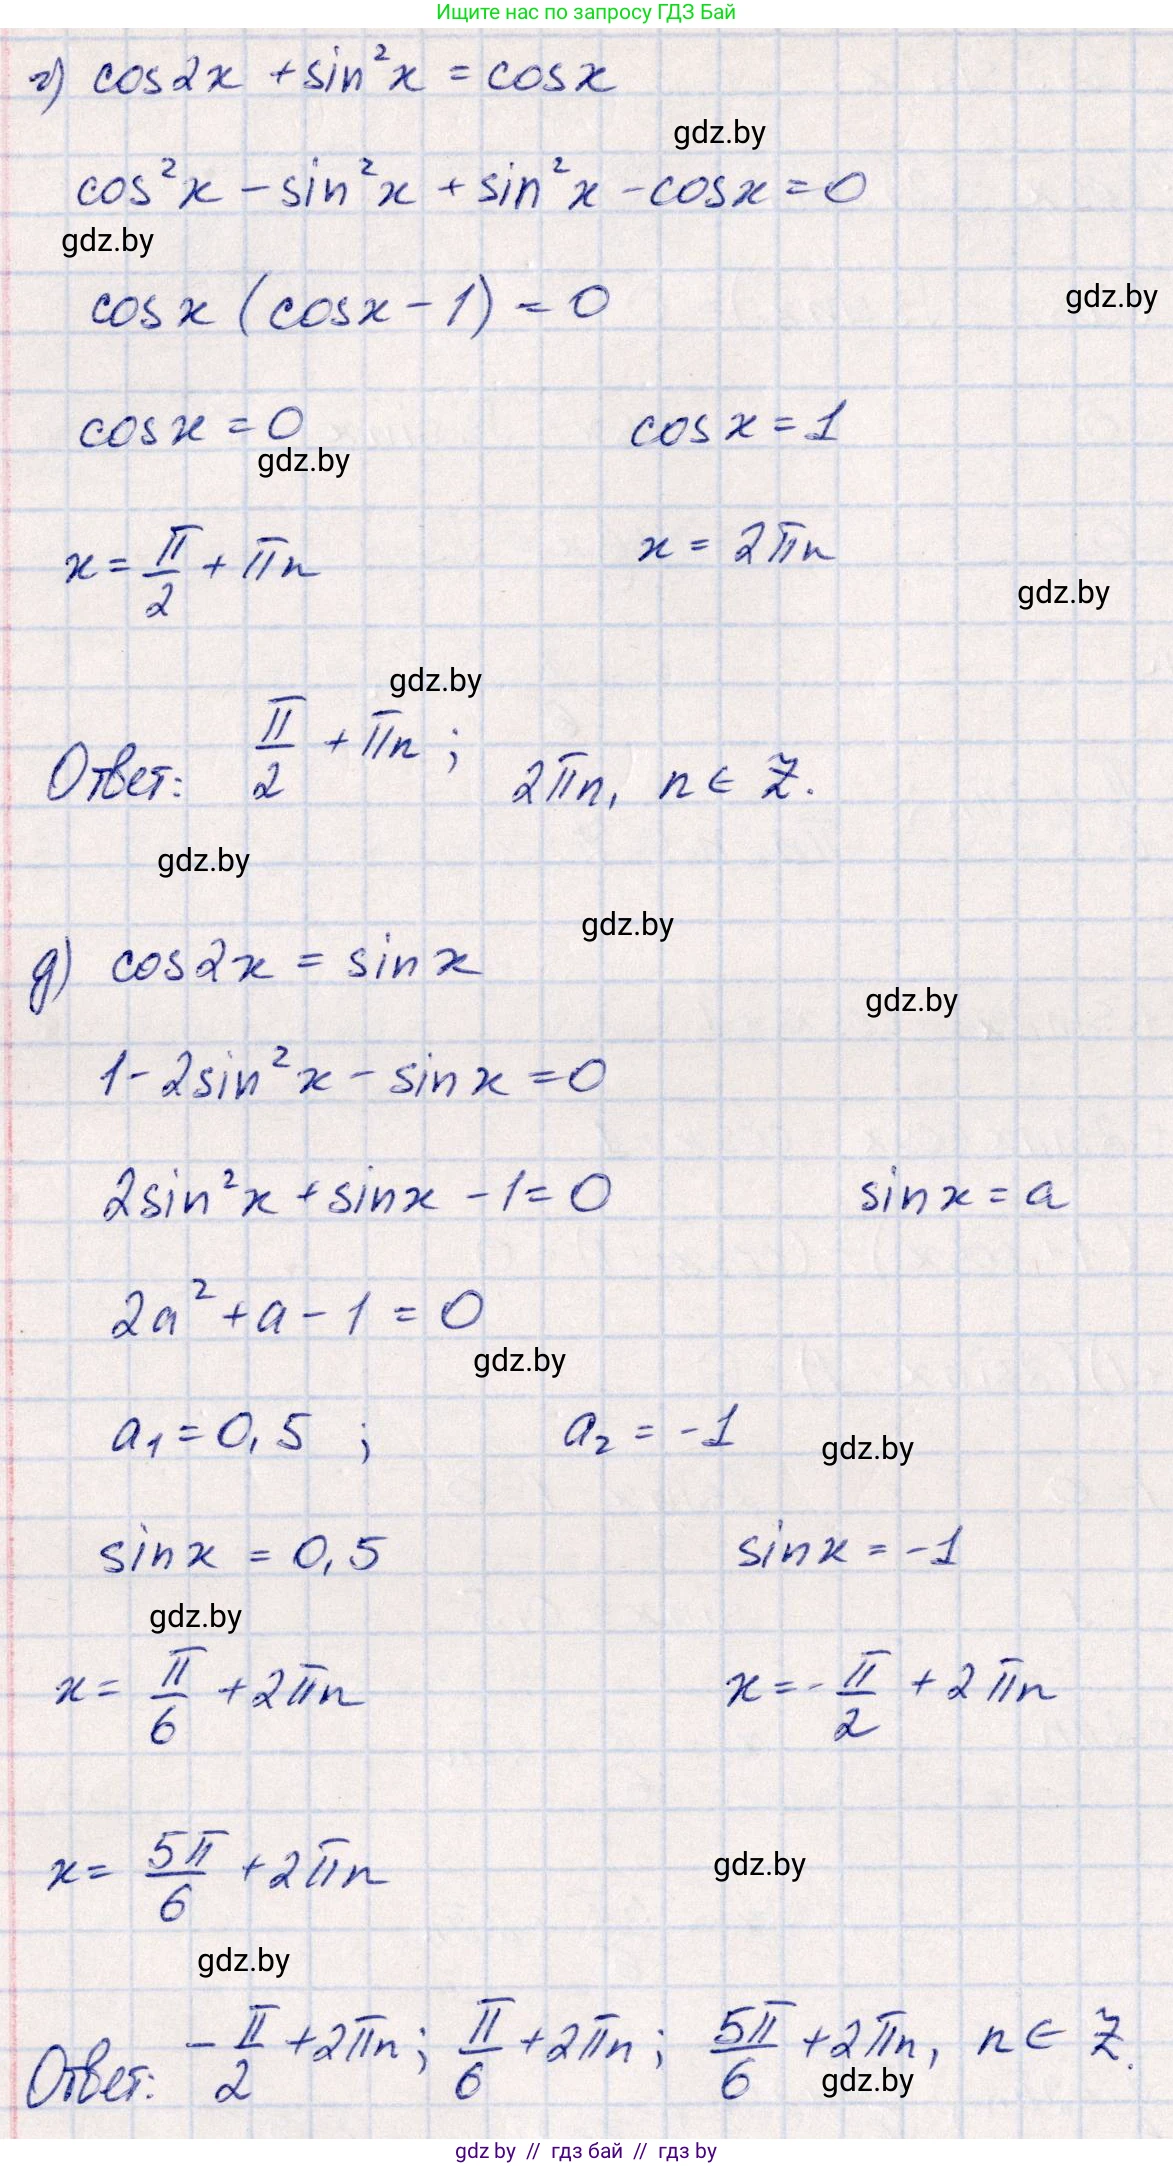 Ищите нас по запросу ГДЗ Бай
г) cos2x + sin²x = cosx
gdz.by
cos²x - sin²x + sin²x - cosx = 0
gdz.by
cosx (cosx - 1) = 0
gdz.by
cosx = 0 cosx = 1
gdz.by
x = π/2 + πn x = 2πn
gdz.by
gdz.by
Ответ: π/2 + πn; 2πn, n ∈ Z.
gdz.by
gdz.by
д) cos2x = sinx
gdz.by
1 - 2sin²x - sinx = 0
2sin²x + sinx - 1 = 0 sinx = a
2a² + a - 1 = 0
gdz.by
a₁ = 0,5 ; a₂ = -1
gdz.by
sinx = 0,5 sinx = -1
gdz.by
x = π/6 + 2πn x = -π/2 + 2πn
x = 5π/6 + 2πn
gdz.by
gdz.by
Ответ: -π/2 + 2πn; π/6 + 2πn; 5π/6 + 2πn, n ∈ Z.
gdz.by
gdz.by // гдз бай // гдз by